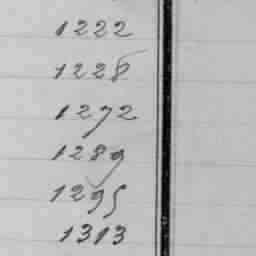 1222
1228
1272
1289
1295
1313